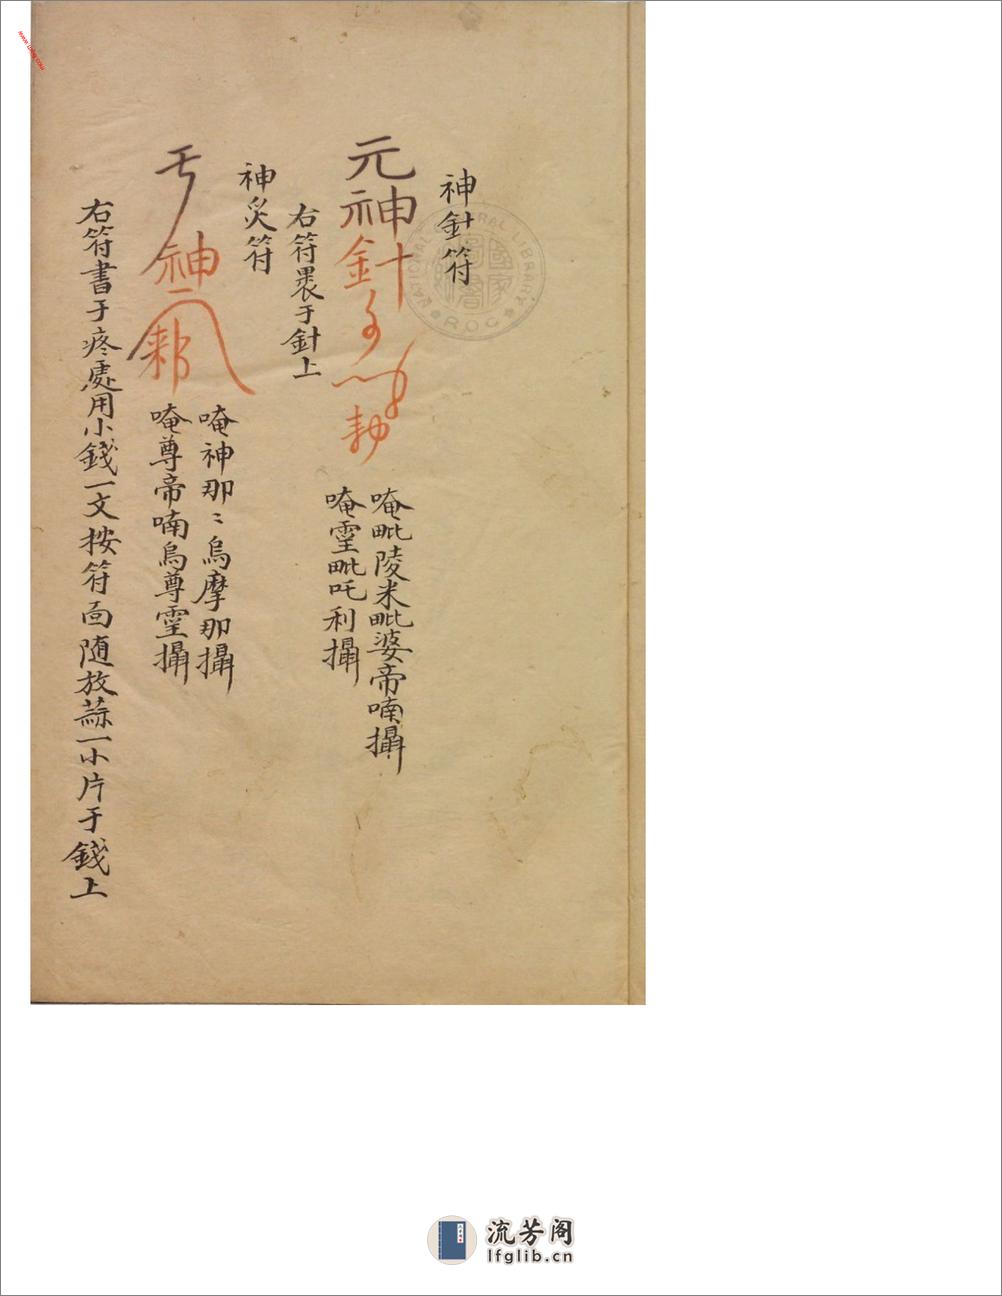 神針符
元神針
唵毗陵米毗婆帝喃攝
唵霊毗吒利攝
右符畏于針上
神灸符
神
唵神那〻烏摩那攝
唵尊帝喃烏尊霊攝
右符書于疼處用小錢一文按符面随放蒜一小片于錢上
NATIONAL CENTRAL LIBRARY
R.O.C
國家圖書館
流芳阁
lfglib.cn